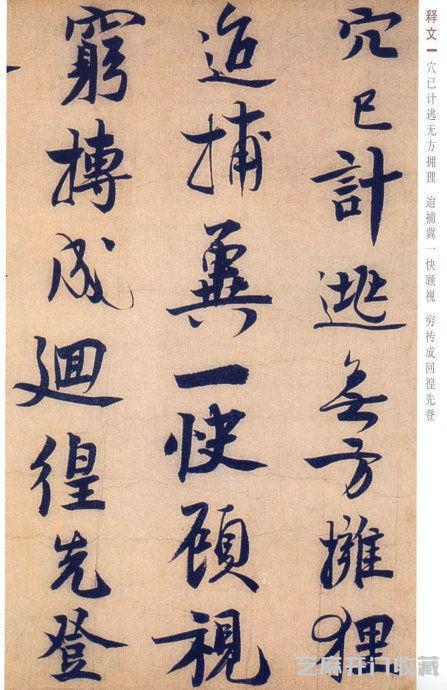 释文 穴已计逃无方拥狸 迨捕冀一快顾视 穷抟成回徨先登
穴已計逃無方擁狸
迨捕冀一快頋視
窮摶成迴徨先登
芝麻开门收藏